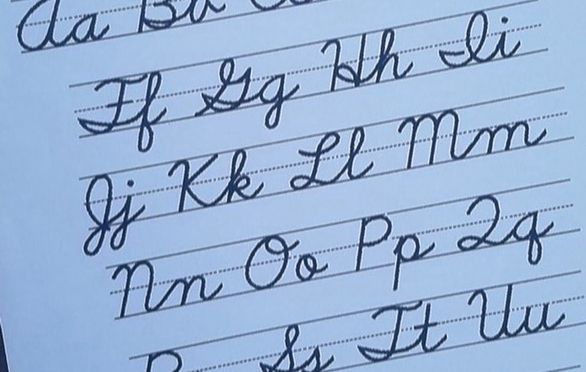 Aa Bb
Ff Gg Hh Ii
Jj Kk Ll Mm
Nn Oo Pp Qq
Ss Tt Uu